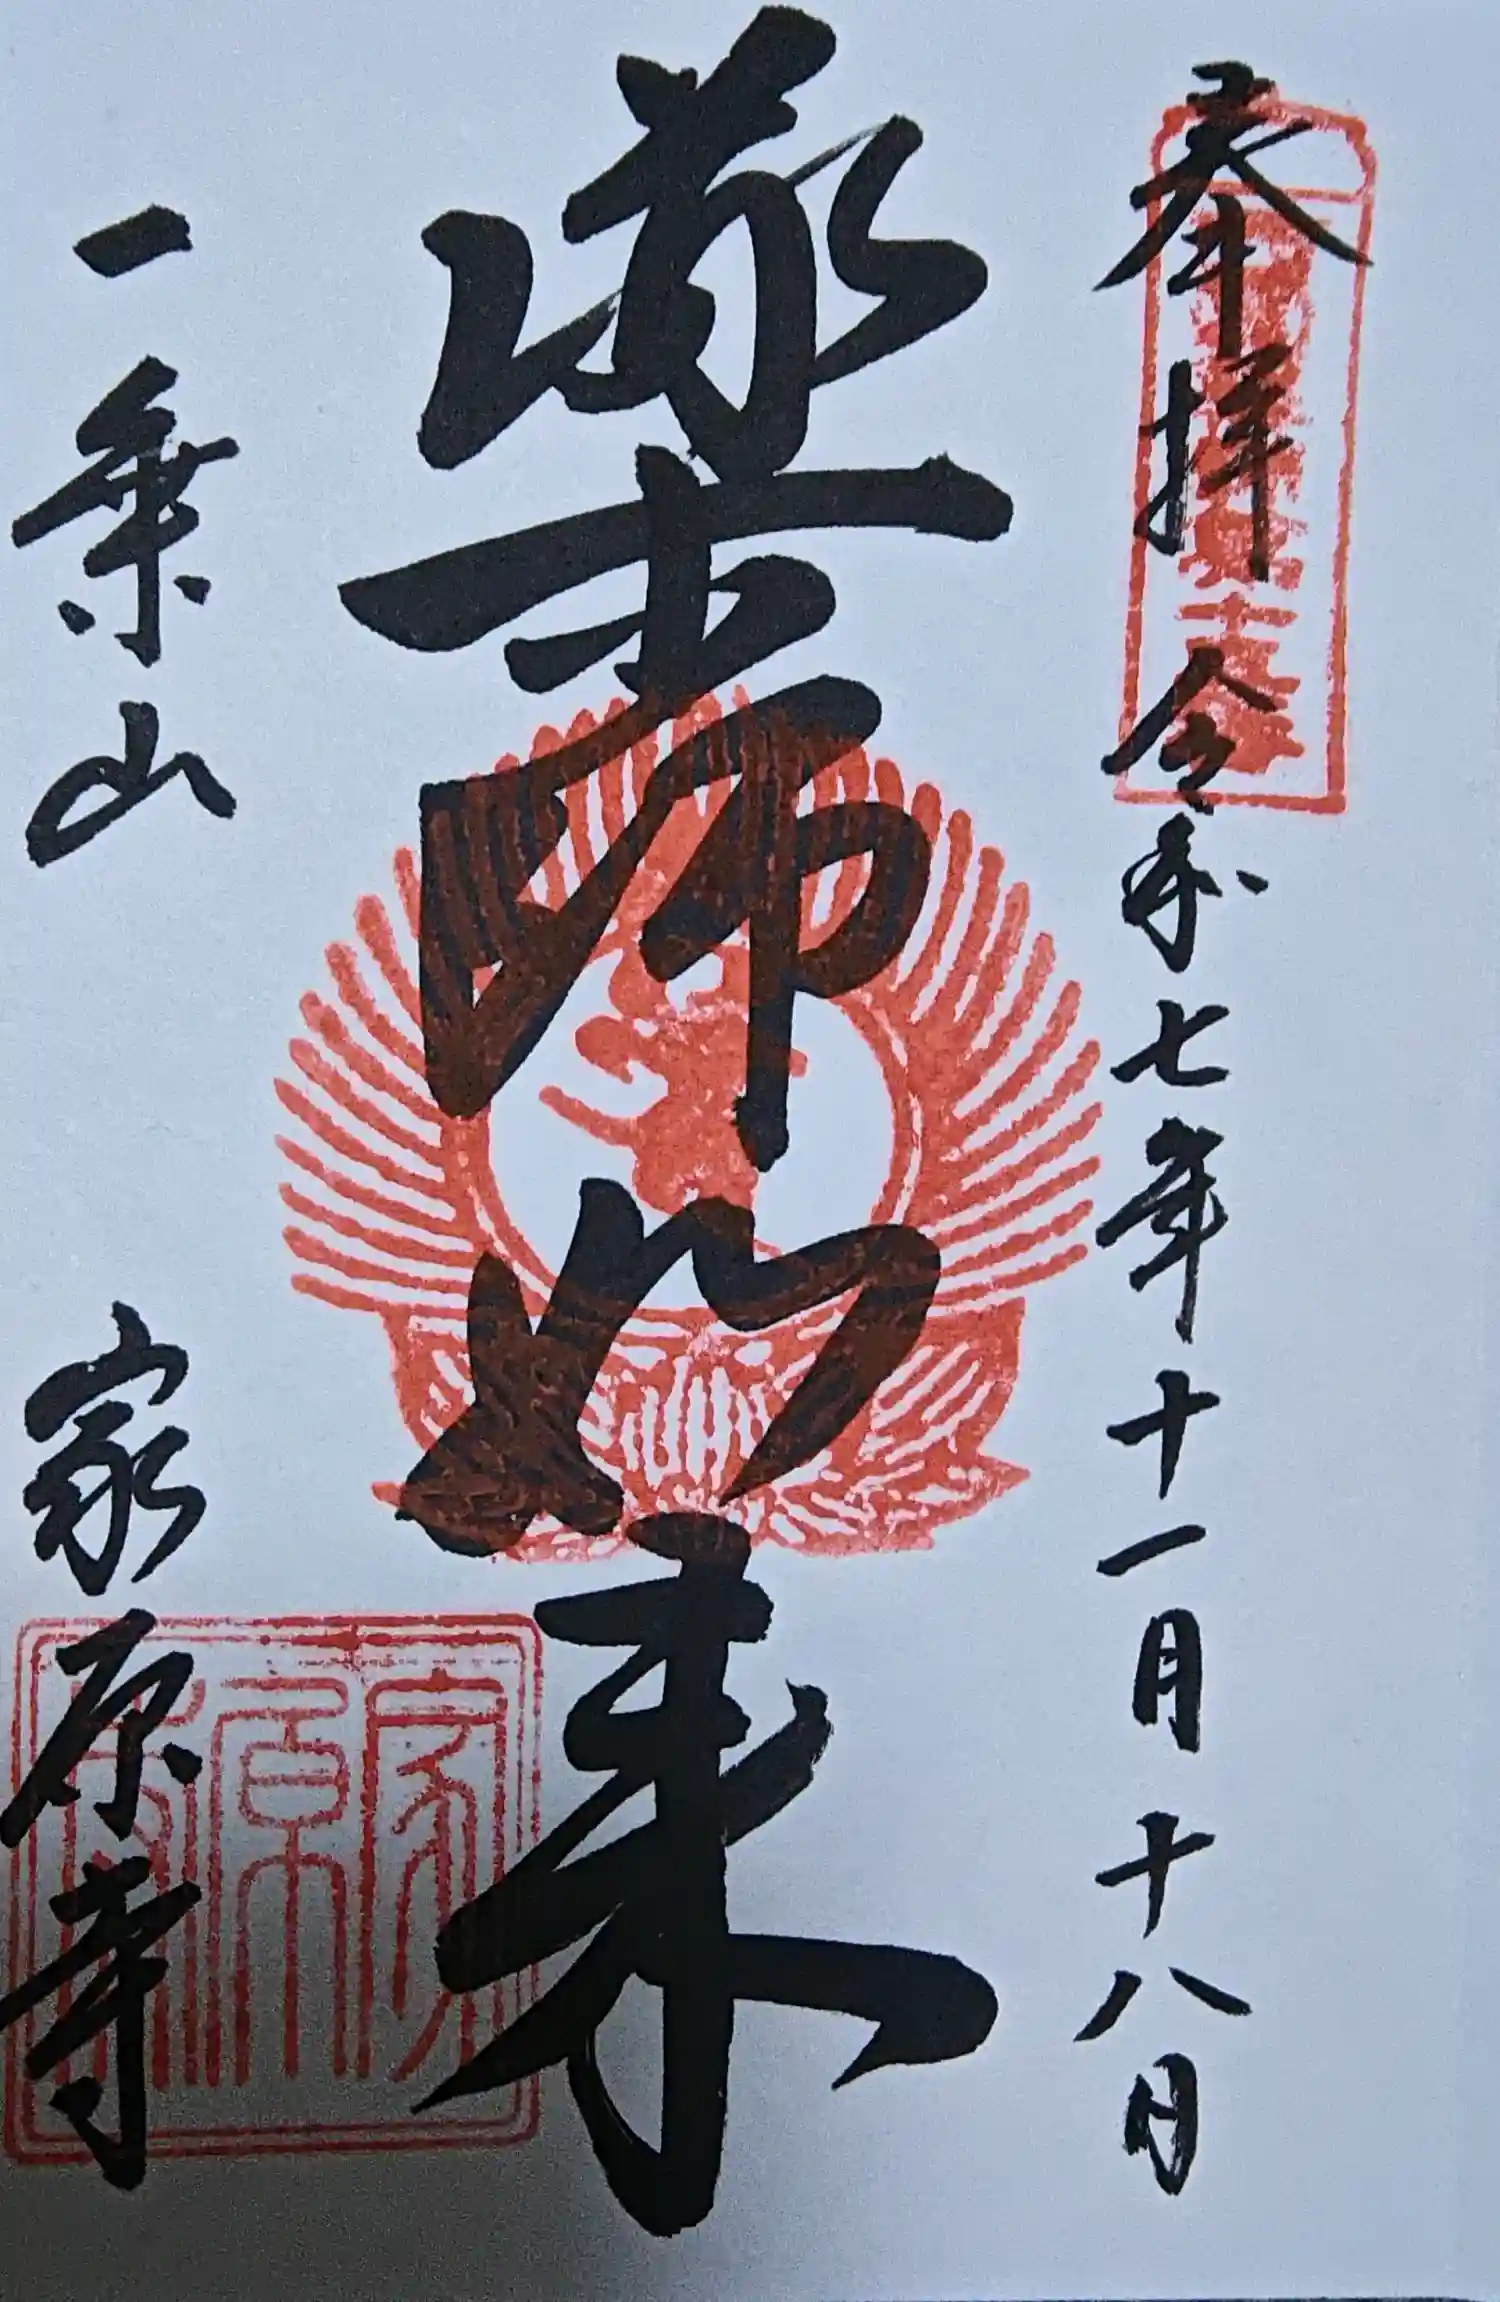 奉拝 令和七年十一月十八日
薬師如来
一乗山 家原寺
家
原